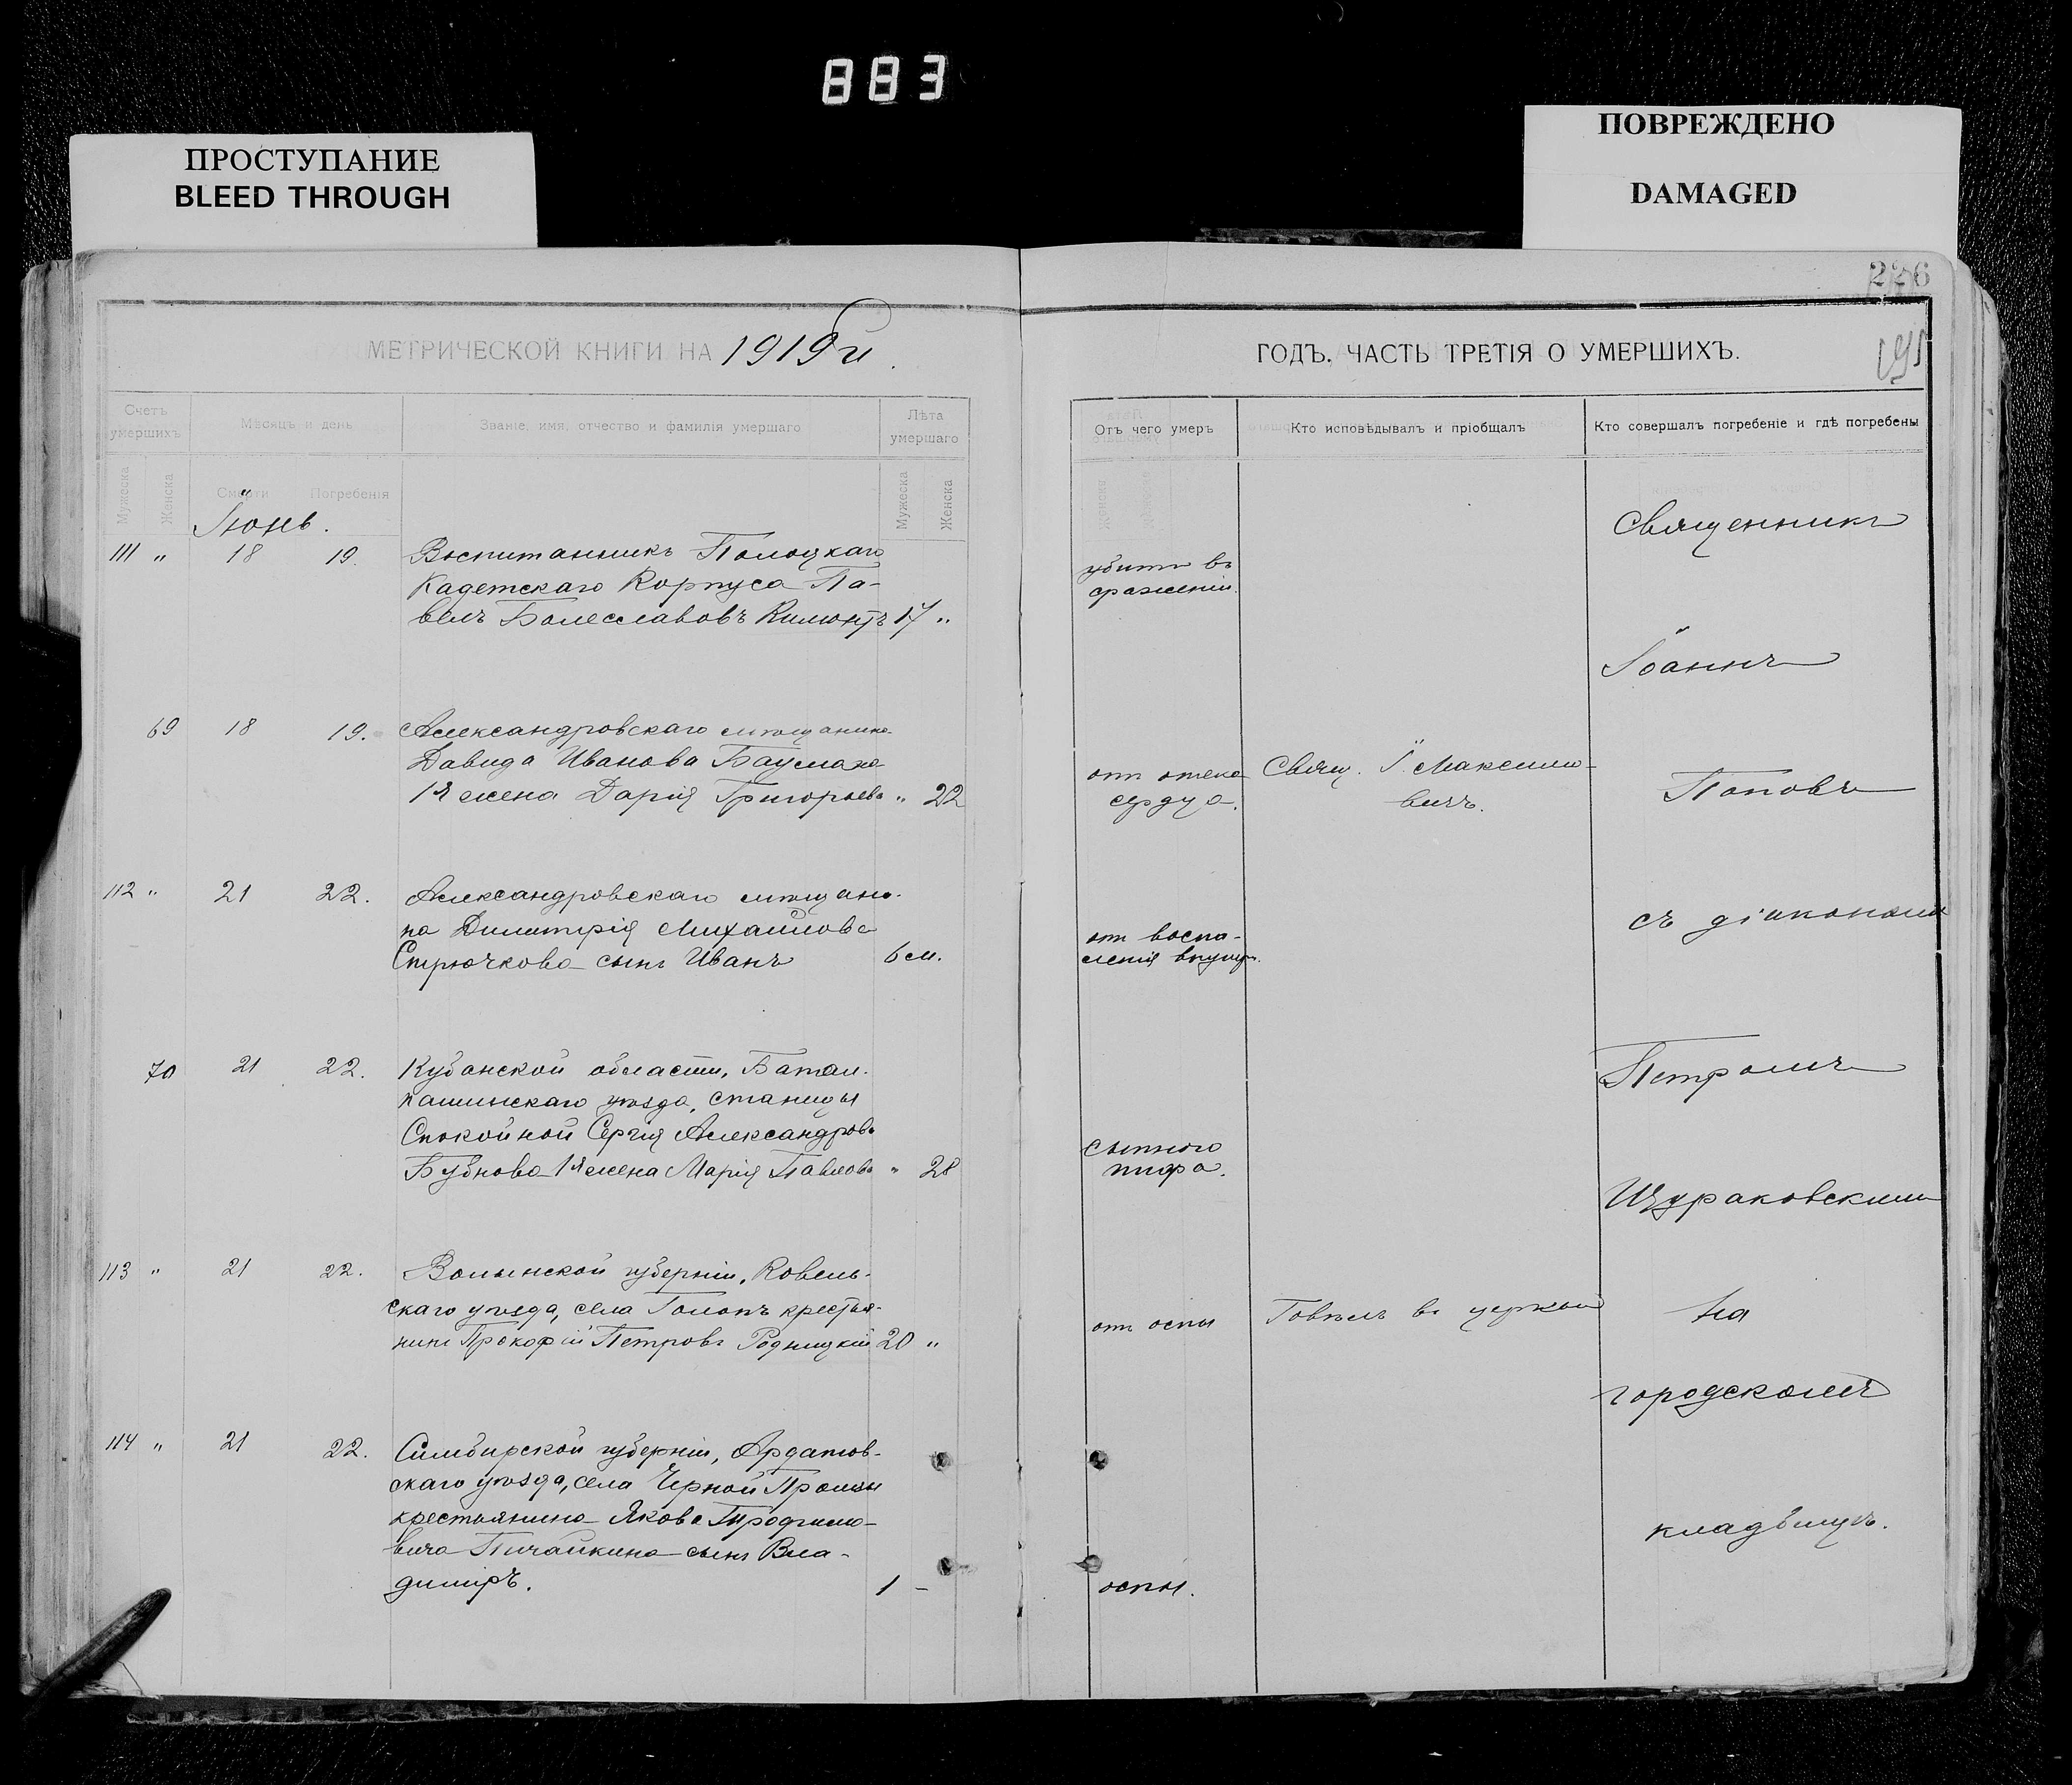 883
ПРОСТУПАНИЕ
BLEED THROUGH
ПОВРЕЖДЕНО
DAMAGED
226
МЕТРИЧЕСКОЙ КНИГИ НА 1919й
Счетъ умершихъ
Мѣсяцъ и день
Званіе, имя, отчество и фамилія умершаго
Лѣта умершаго
Мужеска
Женска
Смерти
Погребенія
Мужеска
Женска
Іюнь.
111 " 18 19. Воспитанникъ Полоцкаго
Кадетскаго Корпуса Па-
велъ Болеславовъ Кимонтъ 17 "
69 18 19. Александровскаго мѣщанина
Давида Иванова Баумана
1я жена Дарія Григорьева " 22
112 " 21 22. Александровскаго мѣщани-
на Димитрія Михайлова
Стрючкова сынъ Иванъ 6 м.
70 21 22. Кубанской области, Батал-
пашинскаго уѣзда, станицы
Спокойной Сергія Александрова
Бубнова 1я жена Марія Павлова " 28
113 " 21 22. Волынской губерніи, Ковель-
скаго уѣзда, села Головъ крестья-
нинъ Прокофій Петровъ Родницкій 20 "
114 " 21 22. Симбирской губерніи, Ардатов-
скаго уѣзда, села Черной Промзы
крестьянина Якова Трофимо-
вича Пичайкина сынъ Вла-
димиръ. 1 -
ГОДЪ, ЧАСТЬ ТРЕТІЯ О УМЕРШИХЪ.
195
Отъ чего умеръ
Кто исповѣдывалъ и пріобщалъ
Кто совершалъ погребеніе и гдѣ погребены
убитъ въ
сраженіи.
отъ отека
сердца.
Свящ. І. Максимо-
вичъ.
отъ воспа-
ленія внутр.
сыпного
тифа.
отъ оспы
Говѣлъ въ церкви
оспы.
Священникъ
Іоаннъ
Поповъ
съ діакономъ
Петромъ
Щураковскимъ
на
городскомъ
кладбищѣ.